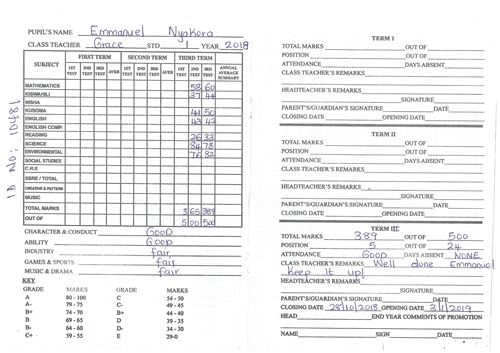 PUPIL'S NAME Emmanuel Nyakora
CLASS TEACHER Grace STD 1 YEAR 2018
SUBJECT FIRST TERM SECOND TERM THIRD TERM ANNUAL AVERAGE SUMMARY
1ST TEST 2ND TEST 3RD TEST AVER 1ST TEST 2ND TEST 3RD TEST AVER 1ST TEST 2ND TEST 3RD TEST
MATHEMATICS 58 60
KISWAHILI 37 44
INSHA
KUSOMA 44 50
ENGLISH 43 42
ENGLISH COMP.
READING 26 33
SCIENCE 84 78
ENVIRONMENTAL 76 82
SOCIAL STUDIES
C.R.E
SSRE / TOTAL
CREATIVE & PATTERN
MUSIC
TOTAL MARKS 365 389
OUT OF 500 500
ID No: 10481
CHARACTER & CONDUCT Good
ABILITY Good
INDUSTRY fair
GAMES & SPORTS fair
MUSIC & DRAMA fair
KEY
GRADE MARKS GRADE MARKS
A 80 - 100 C 54 - 50
A- 79 - 75 C- 49 - 45
B+ 74 - 70 B+ 44 - 40
B 69 - 65 D 39 - 35
B- 64 - 60 D- 34 - 30
C+ 59 - 55 E 29-0
TERM I
TOTAL MARKS OUT OF
POSITION OUT OF
ATTENDANCE DAYS ABSENT
CLASS TEACHER'S REMARKS
HEADTEACHER'S REMARKS
SIGNATURE
PARENT'S/GUARDIAN'S SIGNATURE DATE
CLOSING DATE OPENING DATE
TERM II
TOTAL MARKS OUT OF
POSITION OUT OF
ATTENDANCE DAYS ABSENT
CLASS TEACHER'S REMARKS
HEADTEACHER'S REMARKS
SIGNATURE
PARENT'S/GUARDIAN'S SIGNATURE DATE
CLOSING DATE OPENING DATE
TERM III
TOTAL MARKS 389 OUT OF 500
POSITION 5 OUT OF 24
ATTENDANCE Good DAYS ABSENT NONE
CLASS TEACHER'S REMARKS Well done Emmanuel
Keep it up!
HEADTEACHER'S REMARKS
SIGNATURE
PARENT'S/GUARDIAN'S SIGNATURE DATE
CLOSING DATE 28/10/2018 OPENING DATE 3/1/2019
HEAD END YEAR COMMENTS OF PROMOTION
NAME SIGN DATE